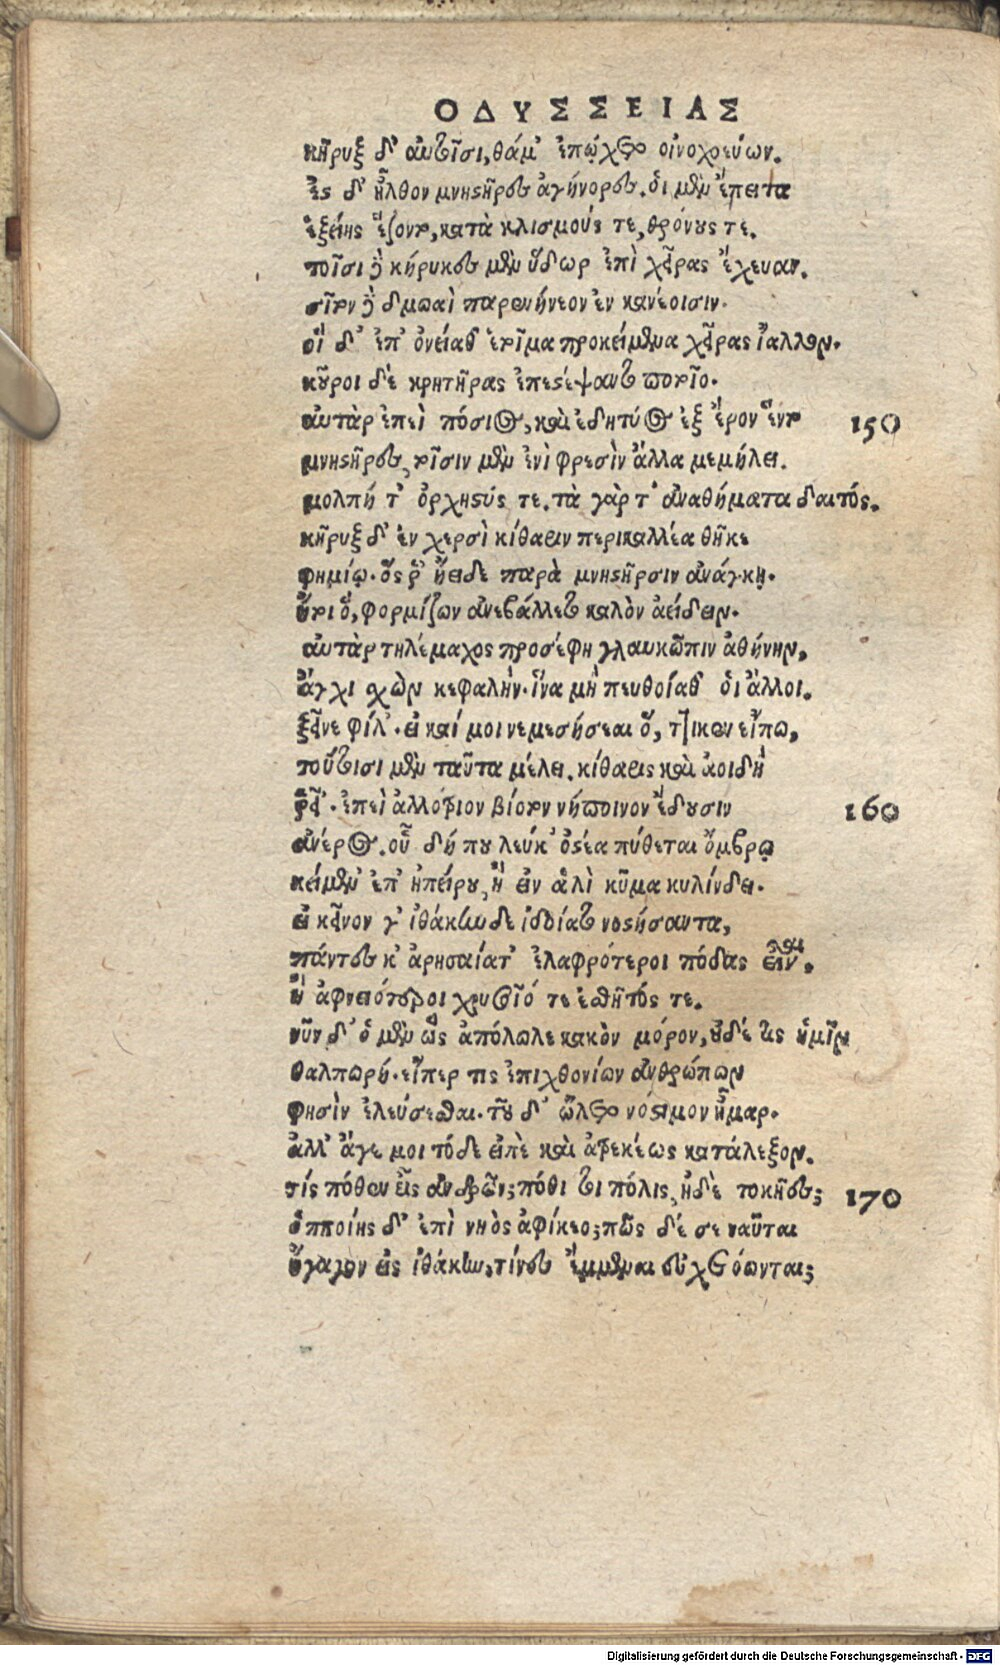 ΟΔΥΣΣΕΙΑΣ
κῆρυξ δ' αὐτοῖσι, θάμ' ἐπῴχετο οἰνοχοεύων.
ἐς δ' ἦλθον μνηστῆρες ἀγήνορες. οἱ μὲν ἔπειτα
ἑξείης ἕζοντο, κατὰ κλισμούς τε, θρόνους τε.
τοῖσι δὲ κήρυκες μὲν ὕδωρ ἐπὶ χεῖρας ἔχευαν.
σῖτον δὲ δμωαὶ παρενήνεον ἐν κανέοισιν.
οἱ δ' ἐπ' ὀνείαθ' ἑτοῖμα προκείμενα χεῖρας ἴαλλον.
κοῦροι δὲ κρητῆρας ἐπεστέψαντο ποτοῖο.
αὐτὰρ ἐπεὶ πόσιος, καὶ ἐδητύος ἐξ ἔρον ἕντο 150
μνηστῆρες, τοῖσιν μὲν ἐνὶ φρεσὶν ἄλλα μεμήλει.
μολπή τ' ὀρχηστύς τε. τὰ γὰρ τ' ἀναθήματα δαιτός.
κῆρυξ δ' ἐν χερσὶ κίθαριν περικαλλέα θῆκε
φημίῳ. ὅς ῥ' ἤειδε παρὰ μνηστῆρσιν ἀνάγκῃ.
ἤτοι ὅ, φορμίζων ἀνεβάλλετο καλὸν ἀείδειν.
αὐτὰρ τηλέμαχος προσέφη γλαυκῶπιν ἀθήνην,
ἄγχι σχὼν κεφαλήν. ἵνα μὴ πευθοίαθ' οἱ ἄλλοι.
ξεῖνε φίλ'. εἰ καί μοι νεμεσήσεαι ὅ, ττι κεν εἴπω,
τούτοισι μὲν ταῦτα μέλει. κίθαρις καὶ ἀοιδὴ
ῥεῖ'. ἐπεὶ ἀλλότριον βίοτον νήποινον ἔδουσιν 160
ἀνέρος. οὗ δή που λεύκ' ὀστέα πύθεται ὄμβρῳ
κείμεν' ἐπ' ἠπείρου, ἢ εἰν ἁλὶ κῦμα κυλίνδει.
εἰ κεῖνον γ' ἰθάκηνδε ἰδοίατο νοστήσαντα,
πάντες κ' ἀρησαίατ' ἐλαφρότεροι πόδας εἶναι.
ἢ ἀφνειότεροι χρυσοῖό τε ἐσθῆτός τε.
νῦν δ' ὁ μὲν ὣς ἀπόλωλε κακὸν μόρον, οὐδέ τις ἡμῖν
θαλπωρή. εἴπερ τις ἐπιχθονίων ἀνθρώπων
φησὶν ἐλεύσεσθαι. τοῦ δ' ὤλετο νόστιμον ἦμαρ.
ἀλλ' ἄγε μοι τόδε εἰπὲ καὶ ἀτρεκέως κατάλεξον.
τίς πόθεν εἶς ἀνδρῶν; πόθι τοι πόλις, ἠδὲ τοκῆες; 170
ὁπποίης δ' ἐπὶ νηὸς ἀφίκεο; πῶς δέ σε ναῦται
ἤγαγον εἰς ἰθάκην, τίνες ἔμμεναι εὐχετόωνται;
Digitalisierung gefördert durch die Deutsche Forschungsgemeinschaft - DFG